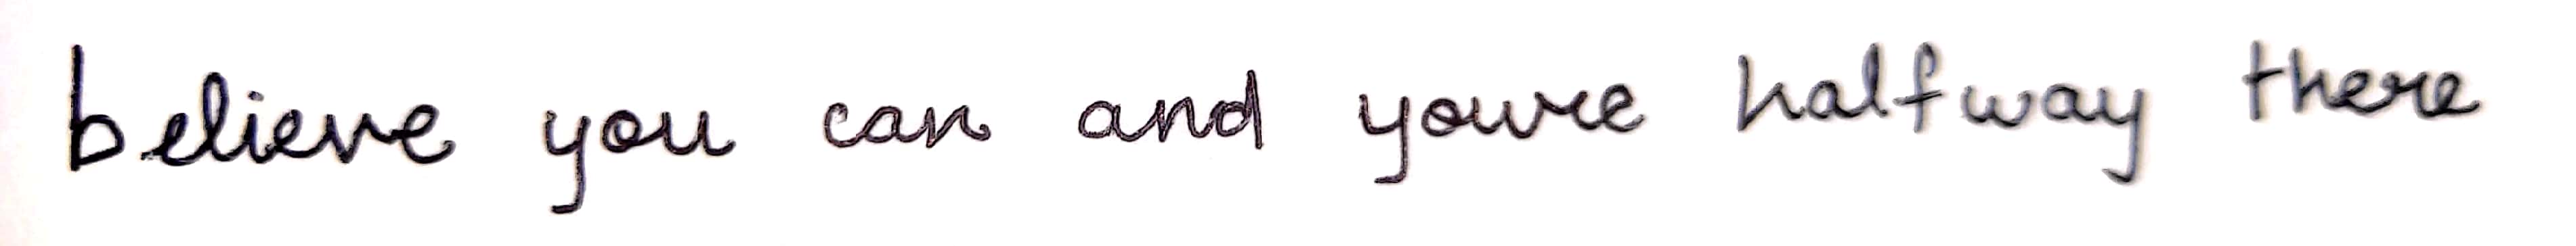 believe you can and youre halfway there